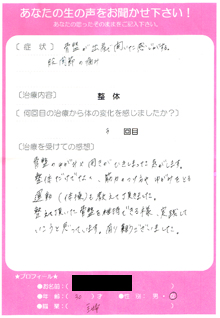 あなたの生の声をお聞かせ下さい!
あなたの思ったその儘まをご記入下さい。
〔 症 状 〕 骨盤が出産で開いた感じがする。
股関節の痛み
〔治療内容〕
整 体
〔 何回目の治療から体の変化を感じましたか？〕
5 回目
〔治療を受けての感想〕
骨盤のゆがみ×開きがひきしまった気がします。
整体だけでなく、筋力のつけ方やゆがみをとる
運動（体操）も教えて頂きました。
整えて頂いた骨盤を維持できる様、実践して
いこうと思っています。有り難うございました。
★プロフィール★
●お名前：（ ）
●年 齢：（ 31 ）才 ●性 別：男・
●職 業：（ 主婦 ）